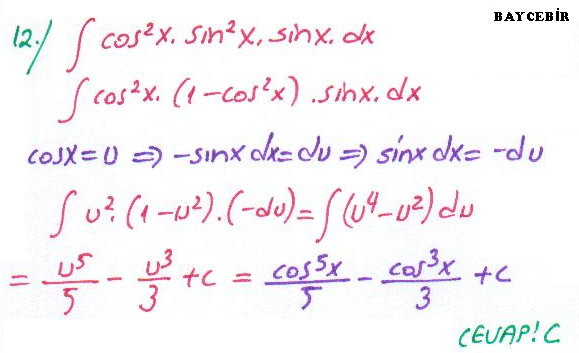 BAYCEBİR
12./ ∫ cos²x. sin²x. sinx. dx
∫ cos²x. (1-cos²x) .sinx. dx
cosx=u ⇒ -sinx dx=du ⇒ sinx dx= -du
∫ u². (1-u²).(-du)= ∫(u⁴-u²)du
= u⁵/5 - u³/3 +c = cos⁵x/5 - cos³x/3 +c
CEVAP! C